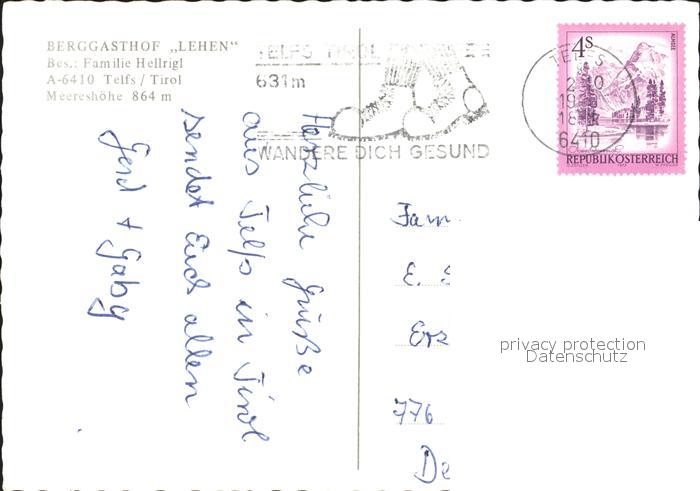 BERGGASTHOF „LEHEN"
Bes.: Familie Hellrigl
A-6410 Telfs / Tirol
Meereshöhe 864 m
TELFS TIROL
631m
WANDERE DICH GESUND
TELFS
18
6410
4s
ALMSEE
REPUBLIK ÖSTERREICH
Herzliche Grüße
aus Telfs in Tirol
sendet Euch allen
Gerd + Gaby
Fam
E.
Erz
776
De
privacy protection
Datenschutz